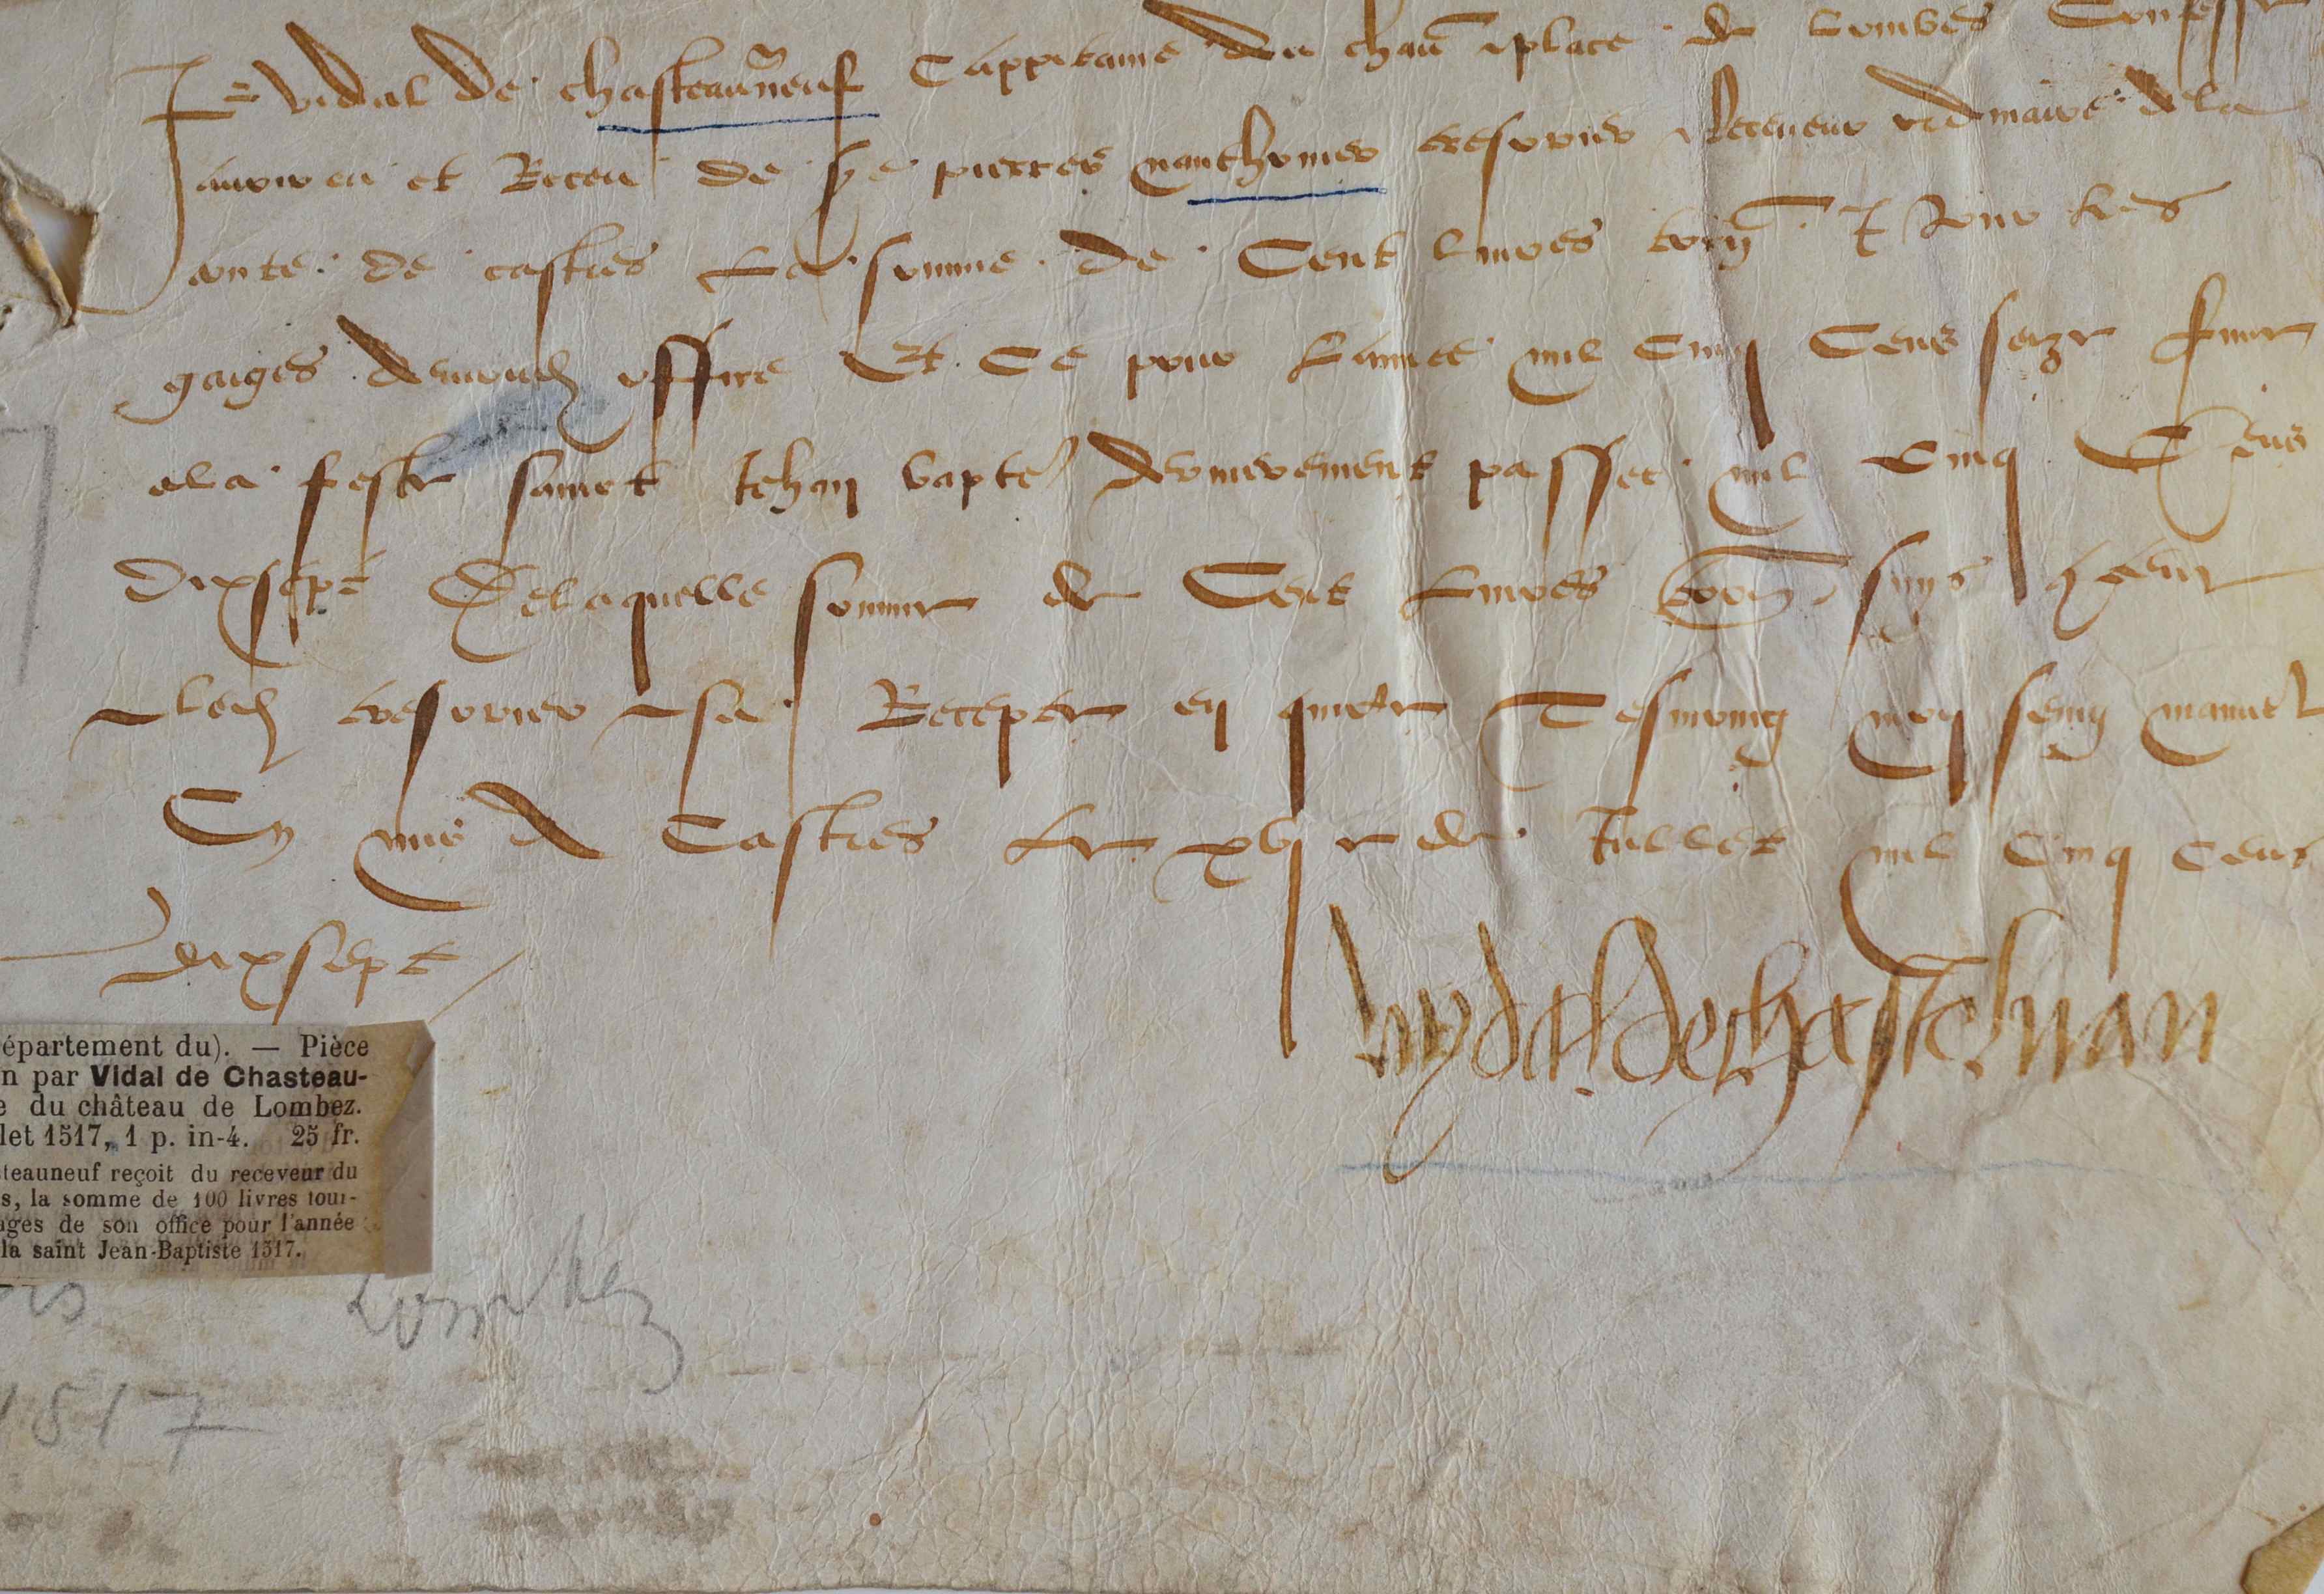 Je vidal de chasteauneuf Cappitaine du chau & place de Lombes Confesse
avoir eu et Receu de sre pierres nanthonier tresorier & Receveur ordinaire de la
conte de castres La somme de Cent livres torn & pour les
gaiges de mond office Et Ce pour Lannee mil Cinq Cens seize finie
a la feste sainct Jehan bapte dernierement passee mil cinq Cens
dixsept De laquelle somme de Cent Livres torn suys
led tresorier & sa Recepte en Tesmoing mon seing manuel
Cy mis A Castres Le xvj e de Jullet mil Cinq cens
dixsept
vydal de chastelnau
épartement du). — Pièce
n par Vidal de Chasteau-
e du château de Lombez.
let 1517, 1 p. in-4. 25 fr.
teauneuf reçoit du receveur du
s, la somme de 100 livres tour-
ages de son office pour l'année
la saint Jean-Baptiste 1517.
Lombez
1517